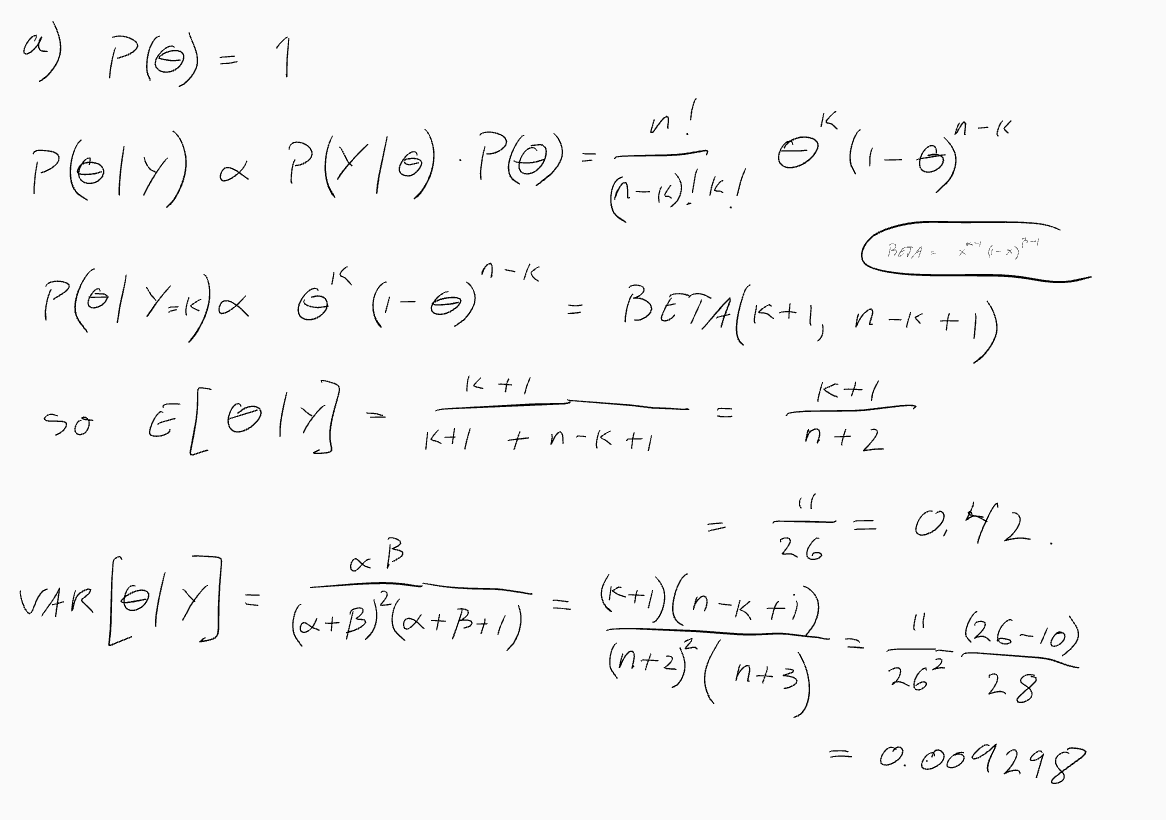 a) P(θ) = 1
P(θ|Y) ∝ P(Y|θ) · P(θ) = n! / (n-k)! k! θ^k (1-θ)^n-k
BETA = x^α-1 (1-x)^β-1
P(θ|Y=k) ∝ θ^k (1-θ)^n-k = BETA(k+1, n-k+1)
so E[θ|Y] = k+1 / k+1 + n-k+1 = k+1 / n+2
= 11/26 = 0.42.
VAR[θ|Y] = αβ / (α+β)^2(α+β+1) = (k+1)(n-k+1) / (n+2)^2(n+3) = 11/26^2 (26-10)/28
= 0.009298